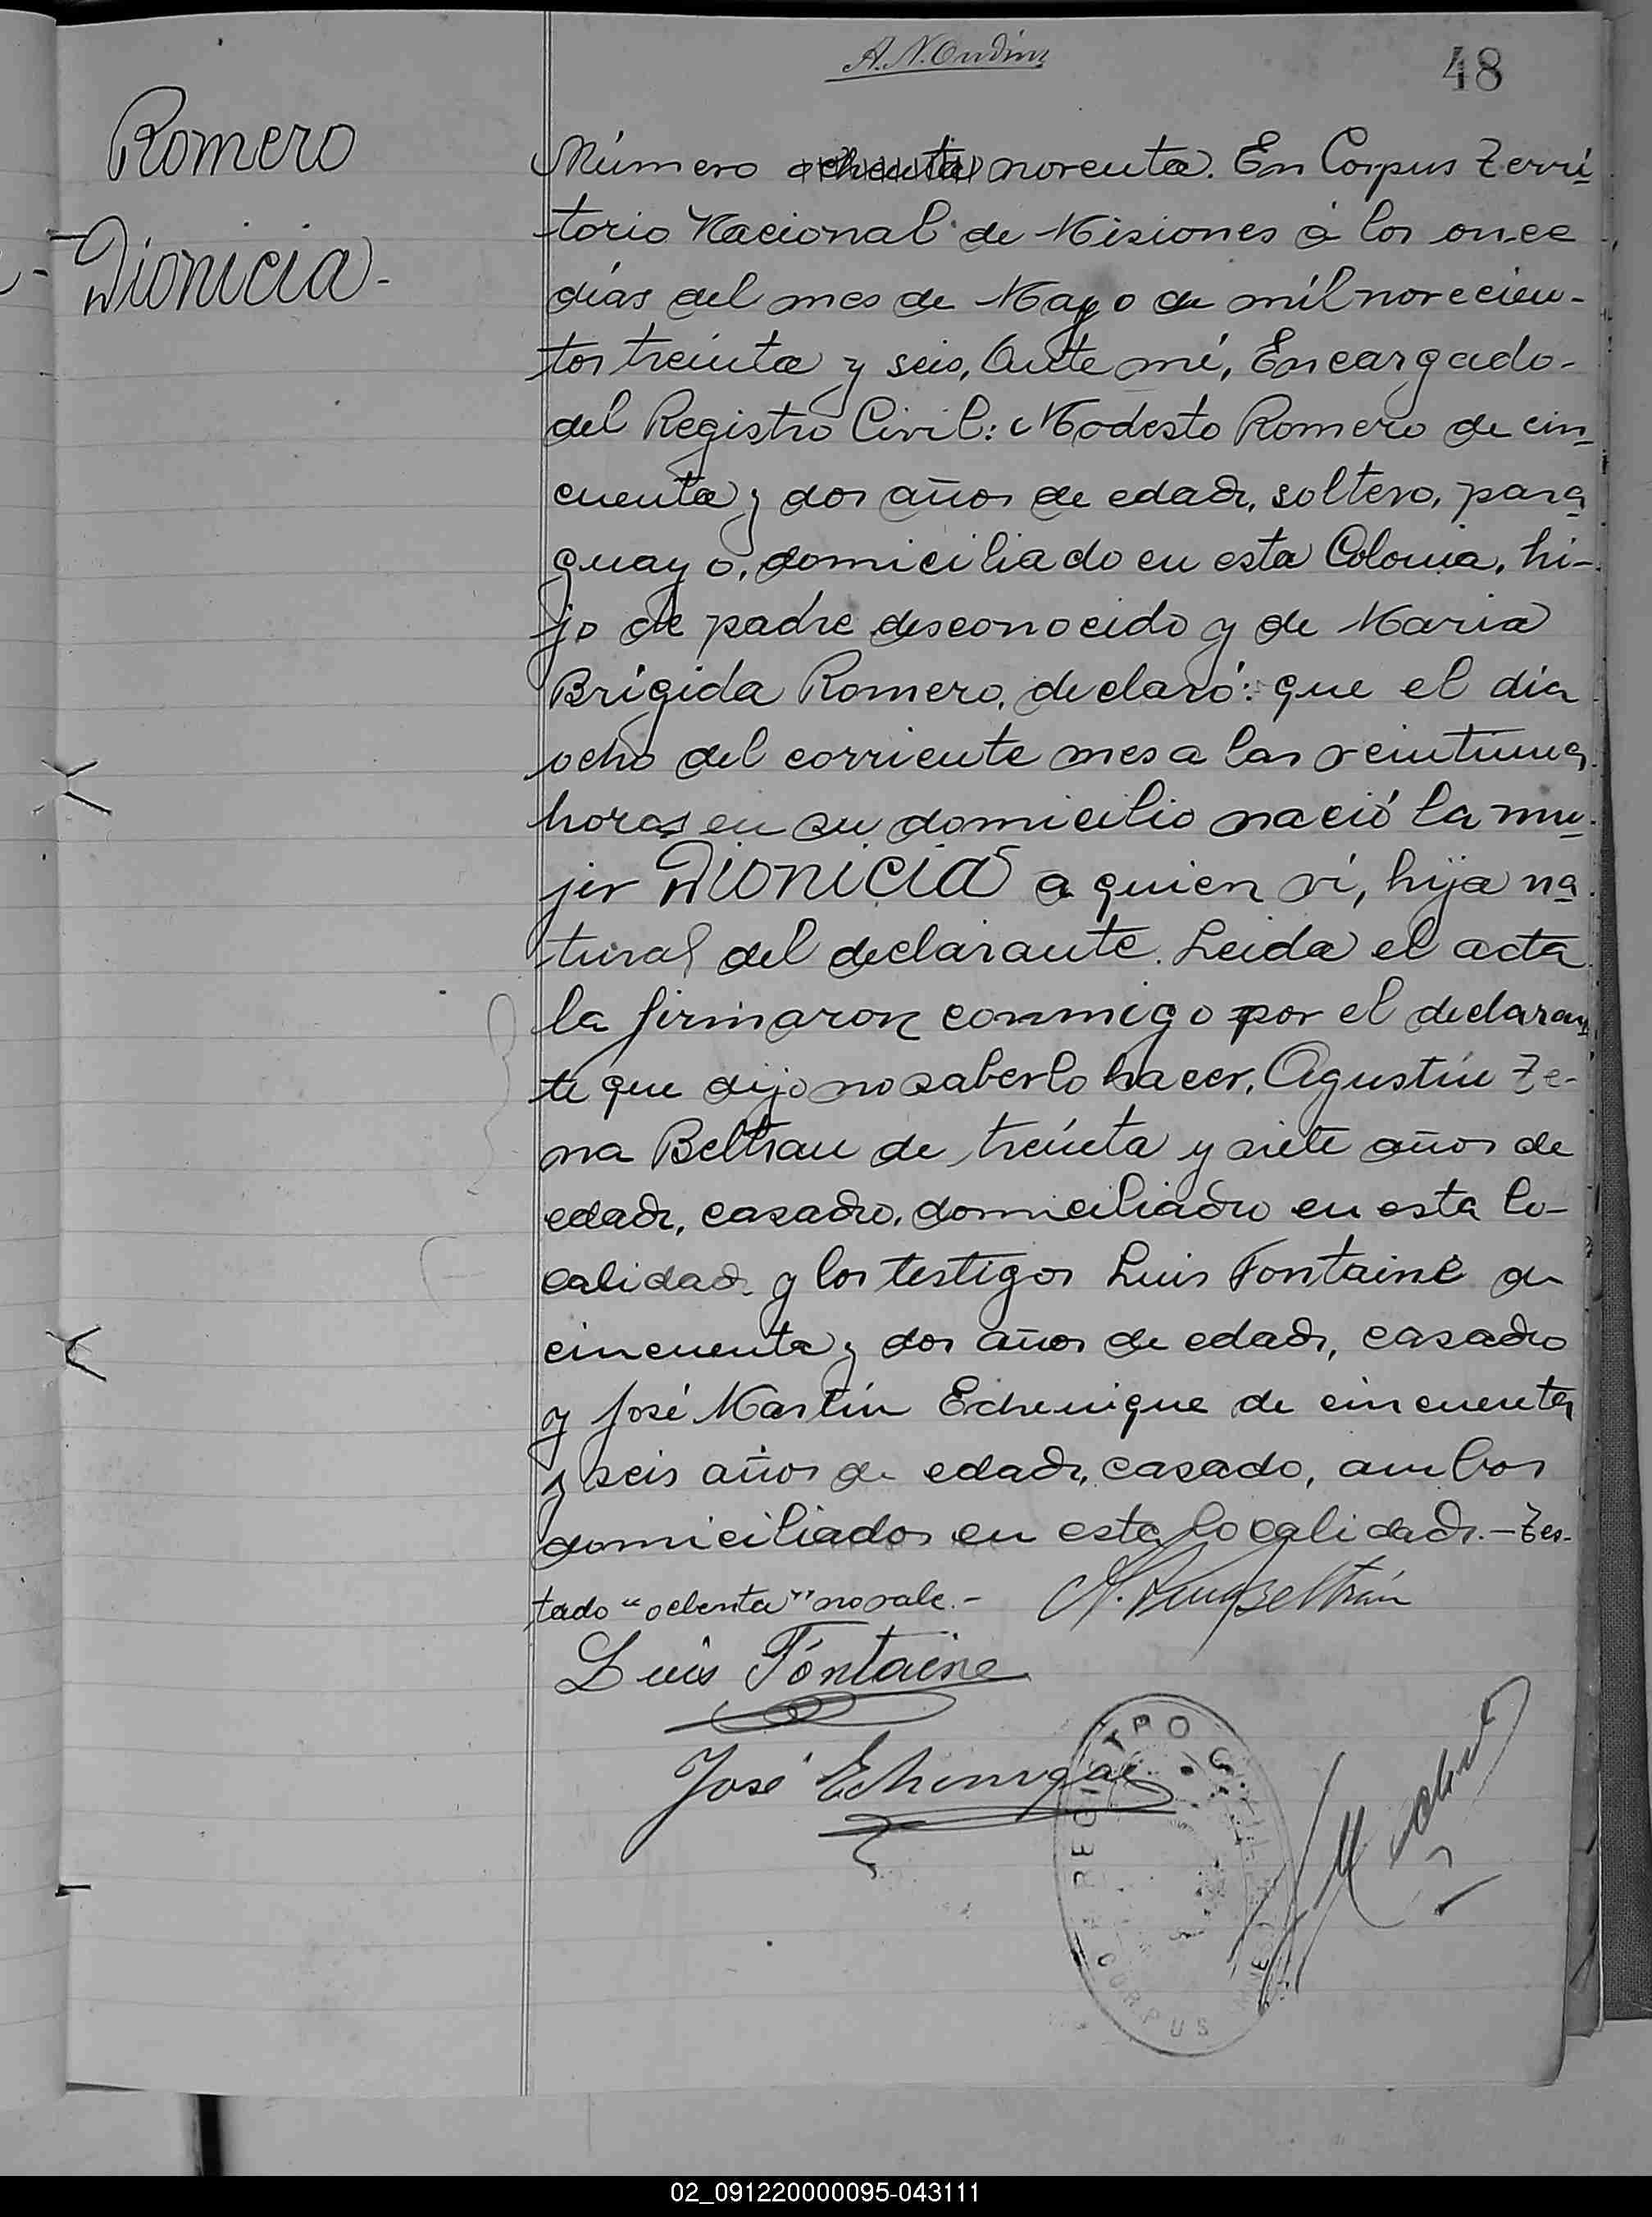 A. N. Ondina
48
Romero
Dionicia-
Número ochenta noventa. En Corpus Terri
torio Nacional de Misiones á los once
días del mes de Mayo de mil novecien-
tos treinta y seis, Ante mí, Encargado-
del Registro Civil: Modesto Romero de cin
cuenta y dos años de edad, soltero, para
guayo, domiciliado en esta Colonia, hi-
jo de padre desconocido y de Maria
Brígida Romero, declaró: que el día
ocho del corriente mes a las veintiuna
horas en su domicilio nació la mu
jer Dionicia a quien ví, hija na
tural del declarante. Leida el acta
la firmaron conmigo por el declaran
te que dijo no saberlo hacer, Agustín Ze-
na Beltran de treinta y siete años de
edad, casado, domiciliado en esta lo-
calidad y los testigos Luis Fontaine de
cincuenta y dos años de edad, casado
y José Martín Echenique de cincuenta
y seis años de edad, casado, ambos
domiciliados en esta localidad.- Tes-
tado "ochenta" no vale.-
Beltrán
Luis Fontaine
José Echenique
REGISTRO C
CORPUS
02_091220000095-043111